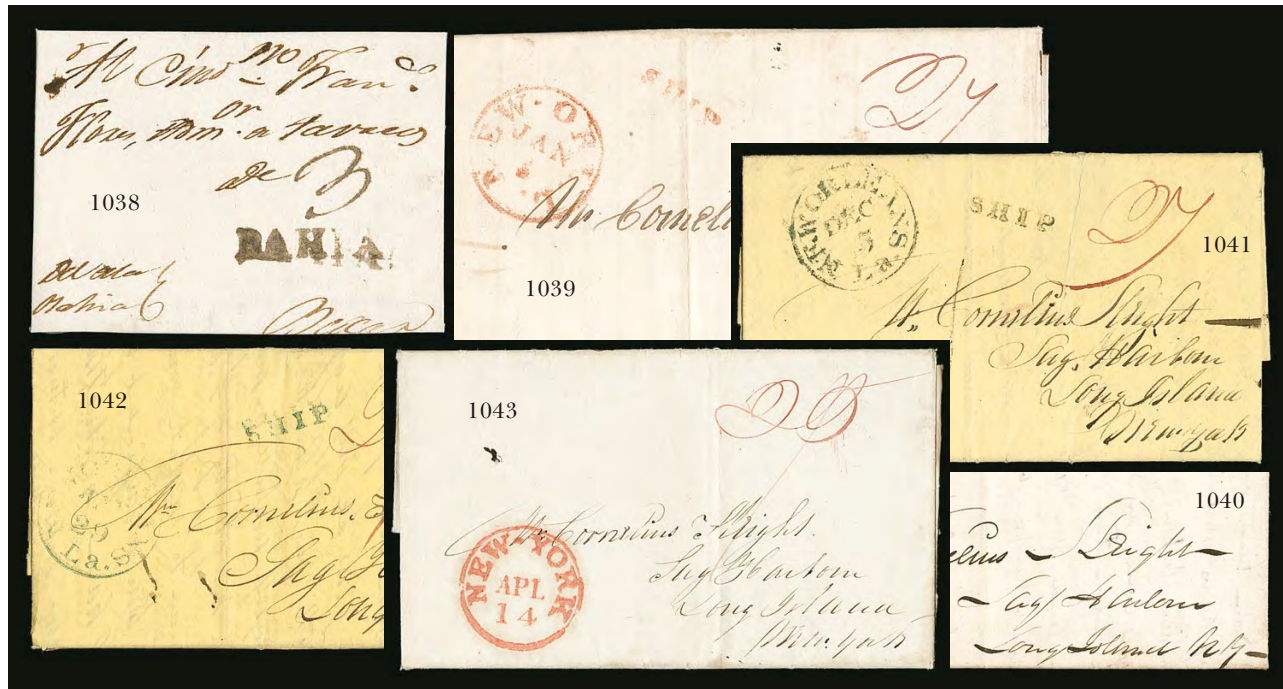 1038
de 3
BAHIA
Bahia
1039
NEW-OR
JAN
SHIP
27
Mr Corneli
1041
NEW ORLEANS La.
DEC
5
SHIP
27
Mr Cornelius Sleight
Sag Harbour
Long Island
New York
1042
SHIP
29
La.
Mr Cornelius
Sag
Long
1043
NEW-YORK
APL
14
Mr Cornelius Sleight
Sag Harbour
Long Island
New York
1040
elius Sleight
Sag Harbour
Long Island NY